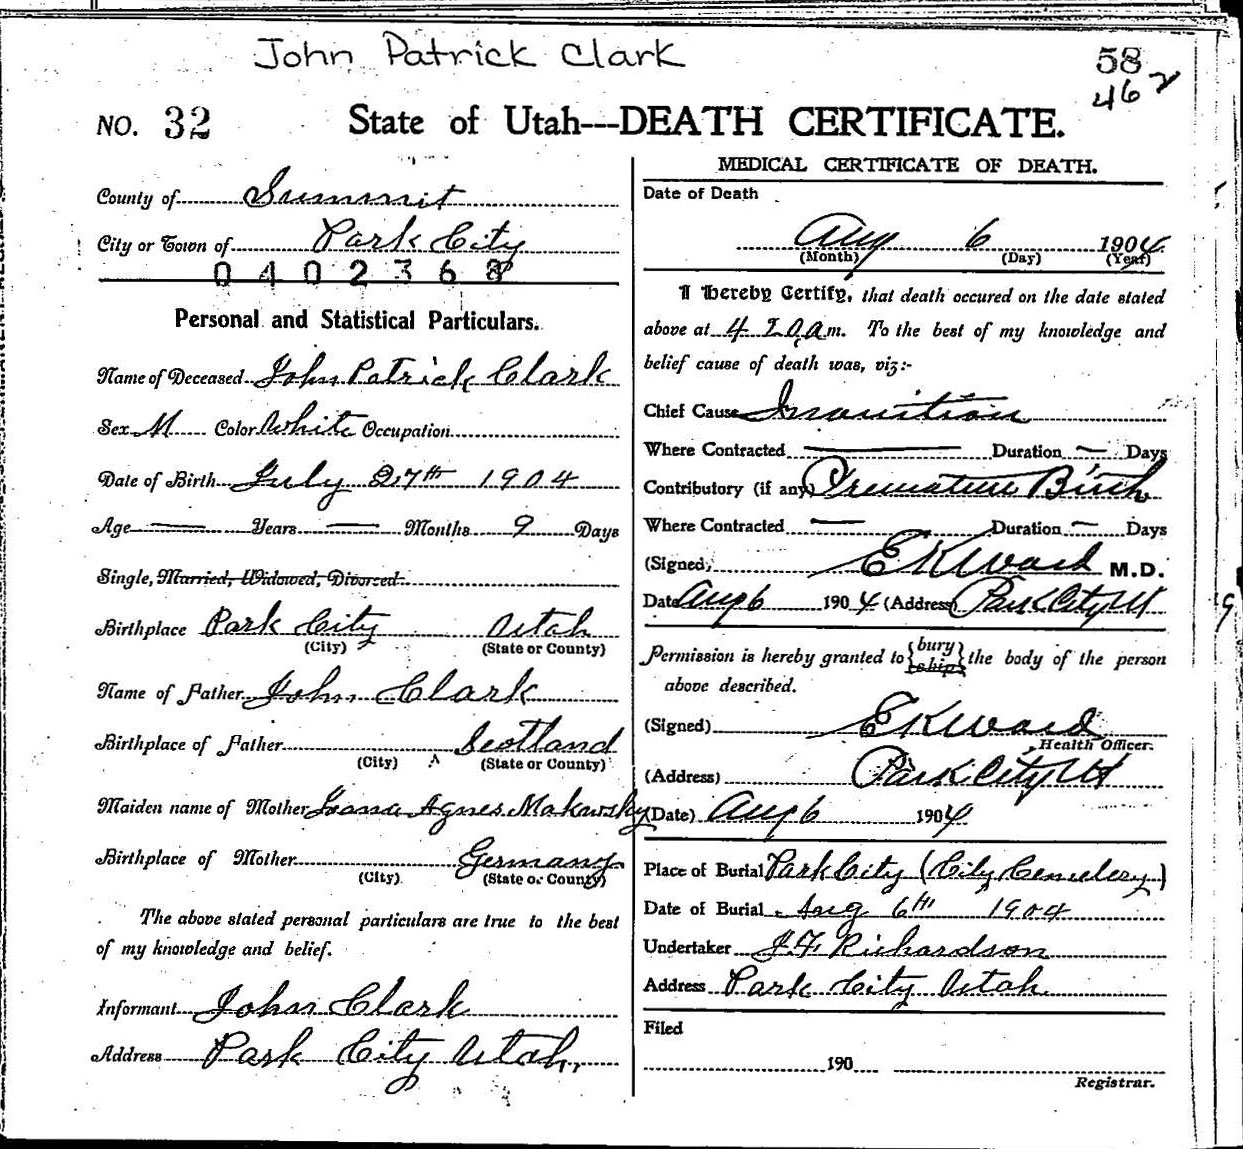 John Patrick Clark
58
46 2
NO. 32 State of Utah---DEATH CERTIFICATE.
County of Summit
City or Town of Park City
0402368
Personal and Statistical Particulars.
Name of Deceased John Patrick Clark
Sex M Color White Occupation
Date of Birth July 27th 1904
Age — Years — Months 9 Days
Single, Married, Widowed, Divorced.
Birthplace Park City Utah
(City) (State or County)
Name of Father John Clark
Birthplace of Father Scotland
(City) (State or County)
Maiden name of Mother Agnes Makowsky
Birthplace of Mother Germany
(City) (State or County)
The above stated personal particulars are true to the best
of my knowledge and belief.
Informant John Clark
Address Park City Utah,
MEDICAL CERTIFICATE OF DEATH.
Date of Death
Aug 6 1904
(Month) (Day) (Year)
I Hereby Certify, that death occured on the date stated
above at 4 20 a m. To the best of my knowledge and
belief cause of death was, viz:-
Chief Cause Inanition
Where Contracted — Duration — Days
Contributory (if any) Premature Birth
Where Contracted — Duration — Days
(Signed) E K Ward M.D.
Date Aug 6 1904 (Address) Park City Ut
Permission is hereby granted to {bury
ship} the body of the person
above described.
(Signed) E K Ward
Health Officer.
(Address) Park City Ut
(Date) Aug 6 1904
Place of Burial Park City (City Cemetery)
Date of Burial Aug 6th 1904
Undertaker J. F. Richardson
Address Park City Utah
Filed
190
Registrar.